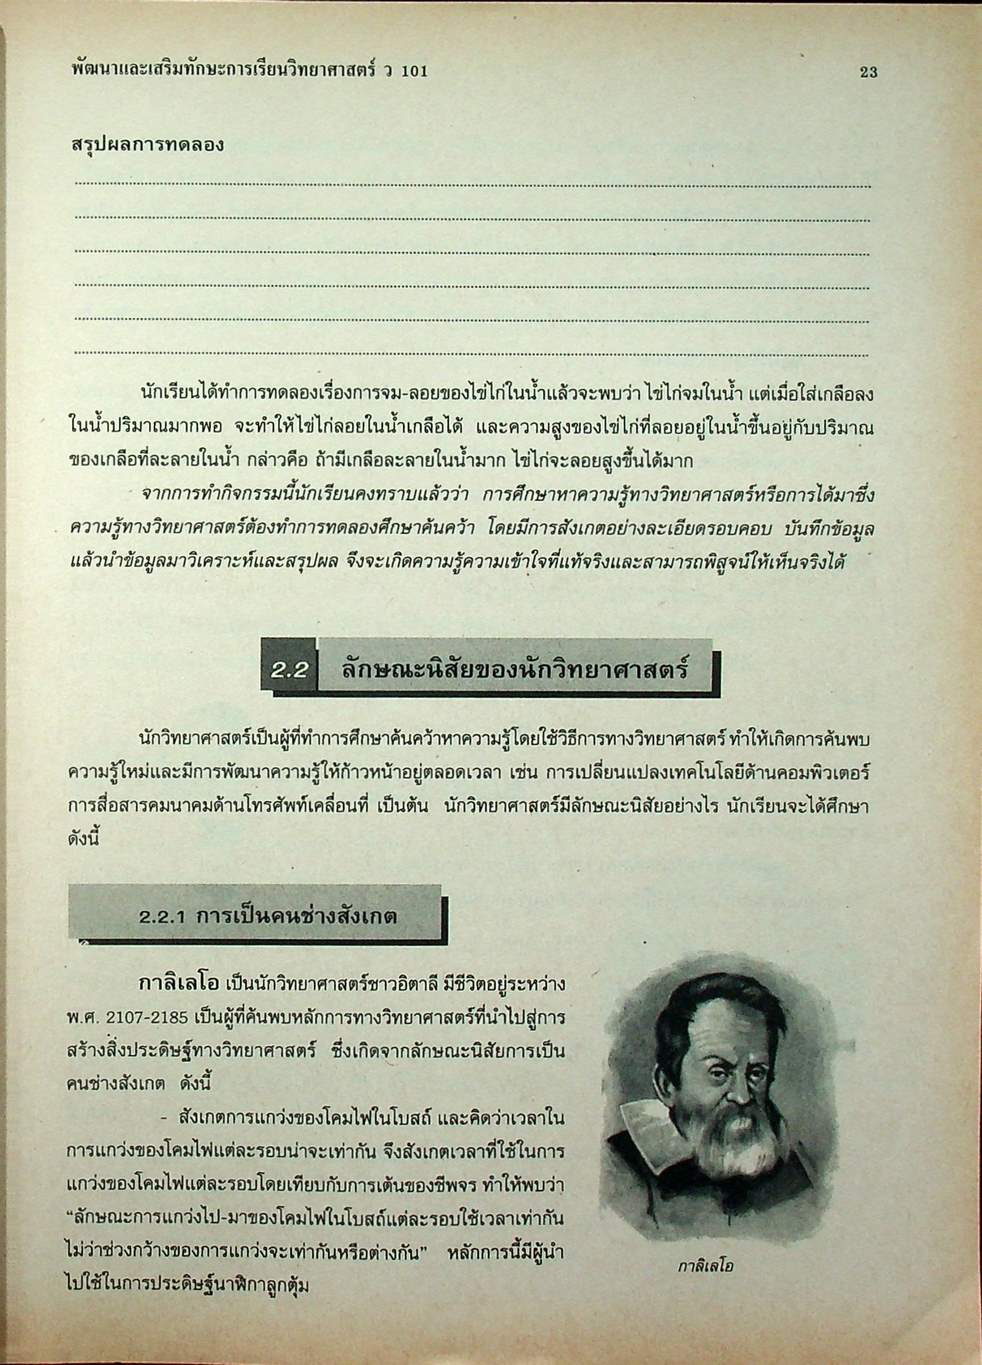 พัฒนาและเสริมทักษะการเรียนวิทยาศาสตร์ ว 101
23
สรุปผลการทดลอง
นักเรียนได้ทำการทดลองเรื่องการจม-ลอยของไข่ไก่ในน้ำแล้วจะพบว่า ไข่ไก่จมในน้ำ แต่เมื่อใส่เกลือลง
ในน้ำปริมาณมากพอ จะทำให้ไข่ไก่ลอยในน้ำเกลือได้ และความสูงของไข่ไก่ที่ลอยอยู่ในน้ำขึ้นอยู่กับปริมาณ
ของเกลือที่ละลายในน้ำ กล่าวคือ ถ้ามีเกลือละลายในน้ำมาก ไข่ไก่จะลอยสูงขึ้นได้มาก
จากการทำกิจกรรมนี้นักเรียนคงทราบแล้วว่า การศึกษาหาความรู้ทางวิทยาศาสตร์หรือการได้มาซึ่ง
ความรู้ทางวิทยาศาสตร์ต้องทำการทดลองศึกษาค้นคว้า โดยมีการสังเกตอย่างละเอียดรอบคอบ บันทึกข้อมูล
แล้วนำข้อมูลมาวิเคราะห์และสรุปผล จึงจะเกิดความรู้ความเข้าใจที่แท้จริงและสามารถพิสูจน์ให้เห็นจริงได้
2.2 ลักษณะนิสัยของนักวิทยาศาสตร์
นักวิทยาศาสตร์เป็นผู้ที่ทำการศึกษาค้นคว้าหาความรู้โดยใช้วิธีการทางวิทยาศาสตร์ ทำให้เกิดการค้นพบ
ความรู้ใหม่และมีการพัฒนาความรู้ให้ก้าวหน้าอยู่ตลอดเวลา เช่น การเปลี่ยนแปลงเทคโนโลยีด้านคอมพิวเตอร์
การสื่อสารคมนาคมด้านโทรศัพท์เคลื่อนที่ เป็นต้น นักวิทยาศาสตร์มีลักษณะนิสัยอย่างไร นักเรียนจะได้ศึกษา
ดังนี้
2.2.1 การเป็นคนช่างสังเกต
กาลิเลโอ เป็นนักวิทยาศาสตร์ชาวอิตาลี มีชีวิตอยู่ระหว่าง
พ.ศ. 2107-2185 เป็นผู้ที่ค้นพบหลักการทางวิทยาศาสตร์ที่นำไปสู่การ
สร้างสิ่งประดิษฐ์ทางวิทยาศาสตร์ ซึ่งเกิดจากลักษณะนิสัยการเป็น
คนช่างสังเกต ดังนี้
- สังเกตการแกว่งของโคมไฟในโบสถ์ และคิดว่าเวลาใน
การแกว่งของโคมไฟแต่ละรอบน่าจะเท่ากัน จึงสังเกตเวลาที่ใช้ในการ
แกว่งของโคมไฟแต่ละรอบโดยเทียบกับการเต้นของชีพจร ทำให้พบว่า
“ลักษณะการแกว่งไป-มาของโคมไฟในโบสถ์แต่ละรอบใช้เวลาเท่ากัน
ไม่ว่าช่วงกว้างของการแกว่งจะเท่ากันหรือต่างกัน” หลักการนี้มีผู้นำ
ไปใช้ในการประดิษฐ์นาฬิกาลูกตุ้ม
กาลิเลโอ